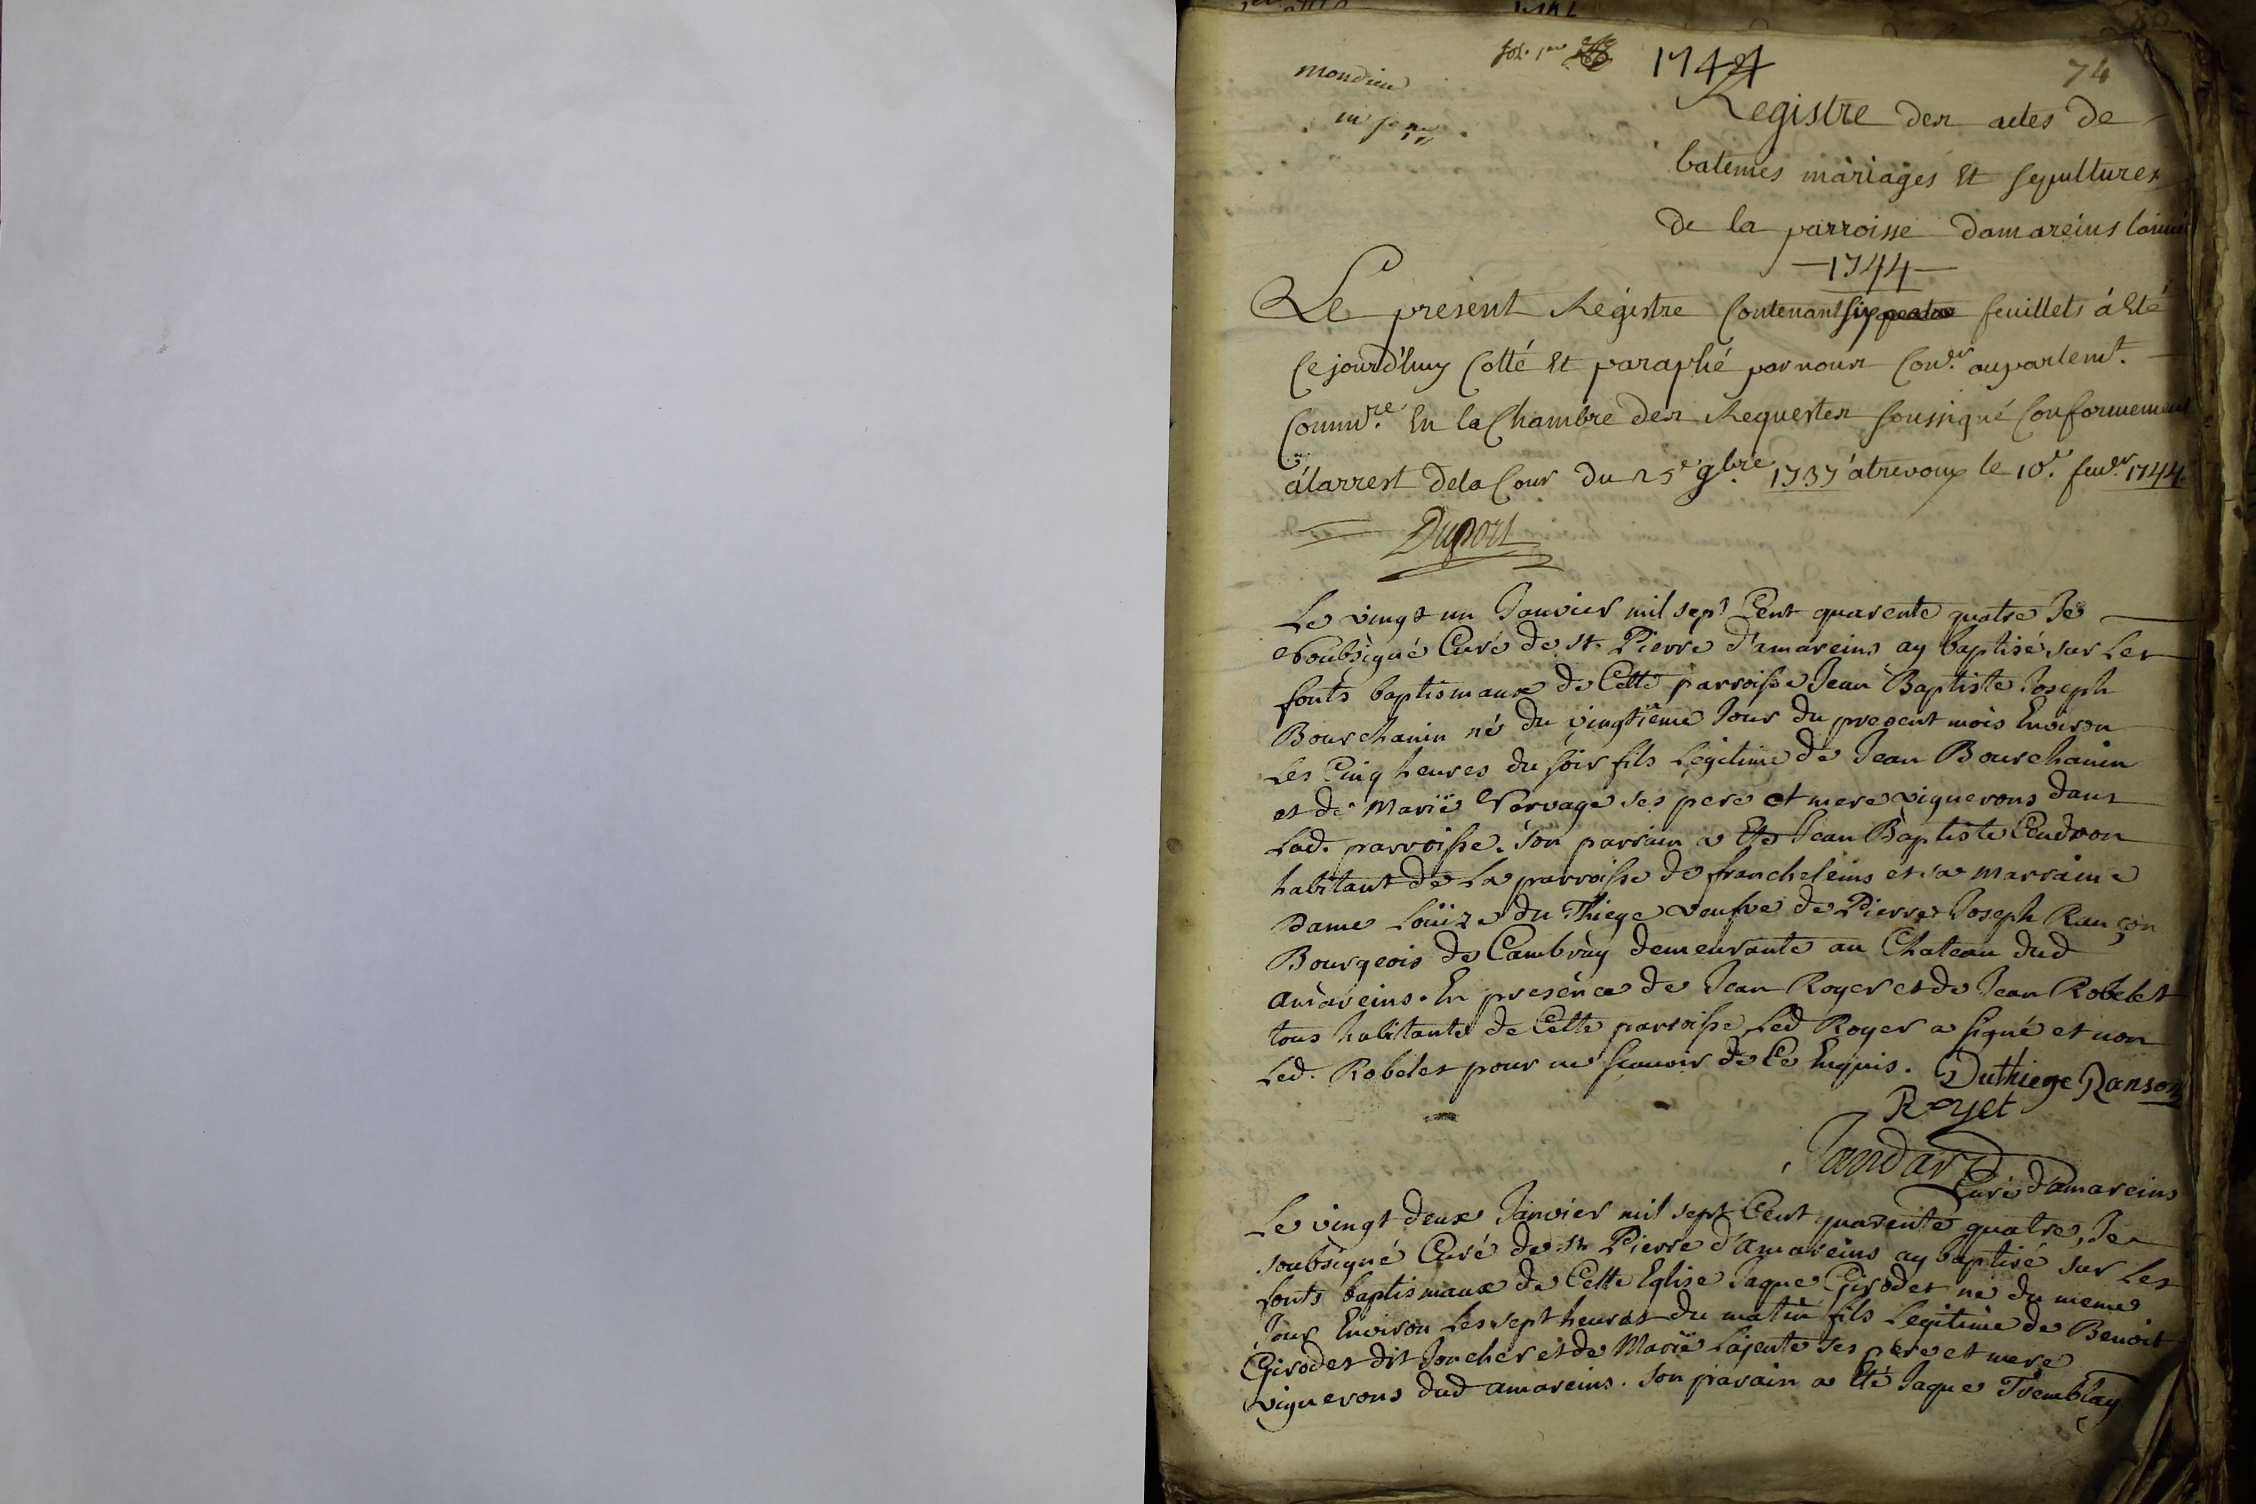 fol. 1er
1744
74
Mondieu
Registre des actes de
batemes màriàges Et sepultures
de la parroisse damareins
—1744—
Le present Registre Contenant six feuillets à Eté
Cejourd'huy Cotté Et paraphé par nous Coner. au parlemt.
Commre. En la Chambre des Requestes soussigné Conformement
à l'arrest dela Cour du 25e 9bre. 1737 à trevoux le 10e. feuer. 1744.
Duport
Le vingt un Janvier mil sept Cent quarente quatre Je
soubsigné Curé de st. Pierre d'amareins ay baptisé sur Les
fonts baptismaux de Cette parroisse Jean Baptiste Joseph
Bourchanin né du vingtième Jour du present mois Environ
Les Cinq heures du soir fils Legitime de Jean Bourchanin
et de Marië Vervage ses pere et mere vignerons dans
Lad. parroisse. Son parrain a Eté Jean Baptiste Cendron
habitant de La parroisse de francheleins et sa marraine
Dame Loüize du Thiege veufve de Pierre Joseph Rançon
Bourgeois de Cambray demeurante au Chateau dud
amareins. En presence de Jean Royer et de Jean Robelet
tous habitants de Cette parroisse Led Royer a signé et non
Led. Robelet pour ne sçauoir de Ce Enquis. Duthiege Ranson
Royet
Jandard
Curé d'amareins
Le vingt deux Janvier mil sept Cent quarente quatre, Je
soubsigné Curé de st Pierre d'amareins ay baptisé sur Les
fonts baptismaux de Cette Eglise Jaque Girodet né du meme
Jour Environ Les sept heures du matin fils Legitime de Benoit
Girodet dit Joncher et de Marië Lajente ses pere et mere
vignerons dud amareins. Son parain a Eté Jaque Tremblay